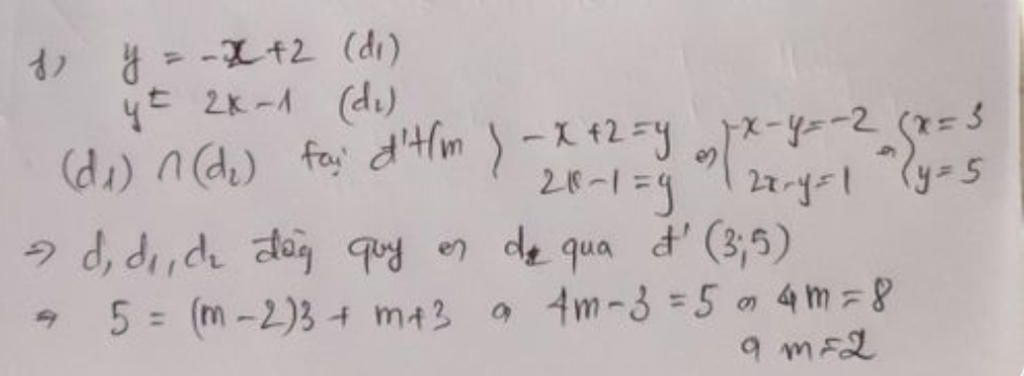 1) y = -x + 2 (d₁)
y = 2x - 1 (d₂)
(d₁) ∩ (d₂) tại đ' t/m { -x + 2 = y ⇔ { -x - y = -2 ⇔ { x = 3
2x - 1 = y 2x - y = 1 y = 5
⇒ d, d₁, d₂ đồng quy ⇔ d qua đ' (3; 5)
⇔ 5 = (m - 2)3 + m + 3 ⇔ 4m - 3 = 5 ⇔ 4m = 8
⇔ m = 2